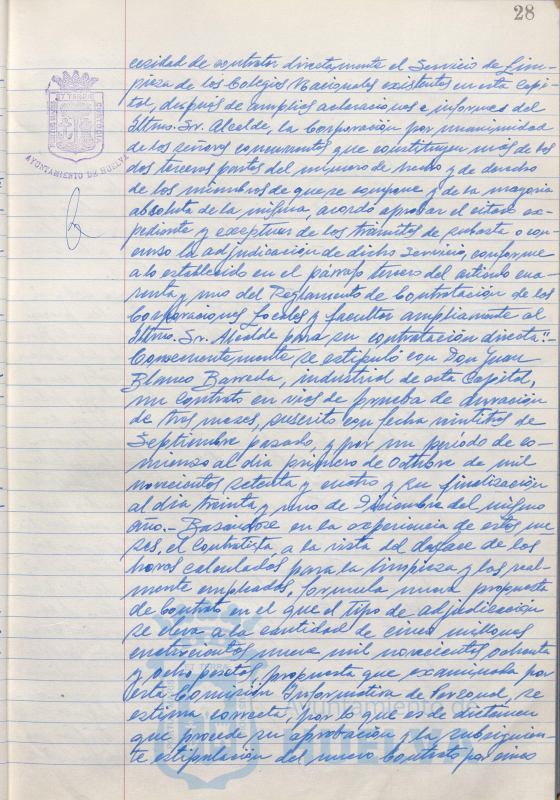 28
cesidad de contratar directamente el Servicio de Lim-
pieza de los Colegios Nacionales existentes en esta Capi-
tal, después de amplias aclaraciones e informes del
Iltmo. Sr. Alcalde, la Corporación por unanimidad
de los señores concurrentes que constituyen más de las
dos terceras partes del número de hecho y de derecho
de los miembros de que se compone y de la mayoría
absoluta de la misma, acordó aprobar el citado ex-
pediente y exceptuar de los trámites de subasta o con-
curso la adjudicación de dicho Servicio, conforme
a lo establecido en el párrafo tercero del artículo cua-
renta y uno del Reglamento de Contratación de las
Corporaciones Locales y facultar ampliamente al
Iltmo. Sr. Alcalde para su contratación directa".-
se estipuló con Don Juan
Blanco Barreda, industrial de esta Capital,
un contrato en vías de prueba de duración
de tres meses, suscrito con fecha veintitrés de
Septiembre pasado, y por un período de co-
mienzo al día primero de Octubre de mil
novecientos setenta y cuatro y su finalización
al día treinta y uno de Diciembre del mismo
año.- Basándose en la experiencia de estos me-
ses, el Contratista, a la vista del desfase de las
horas calculadas para la limpieza y las real-
mente empleadas, formula nueva propuesta
de Contrato en el que el tipo de adjudicación
se eleva a la cantidad de cinco millones
cuatrocientas nueve mil novecientas ochenta
y ocho pesetas, propuesta que examinada por
esta Comisión Informativa de Personal, se
estima correcta, por lo que es de dictamen
que procede su aprobación y la subsiguien-
te estipulación del nuevo Contrato por cinco
AYUNTAMIENTO DE HUELVA
Ayuntamiento de
Huelva